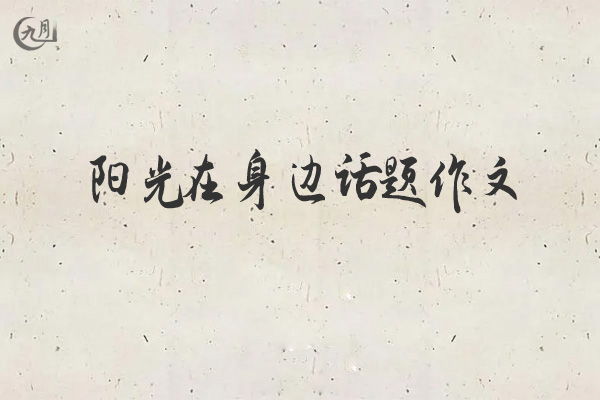 九月
阳光在身边话题作文